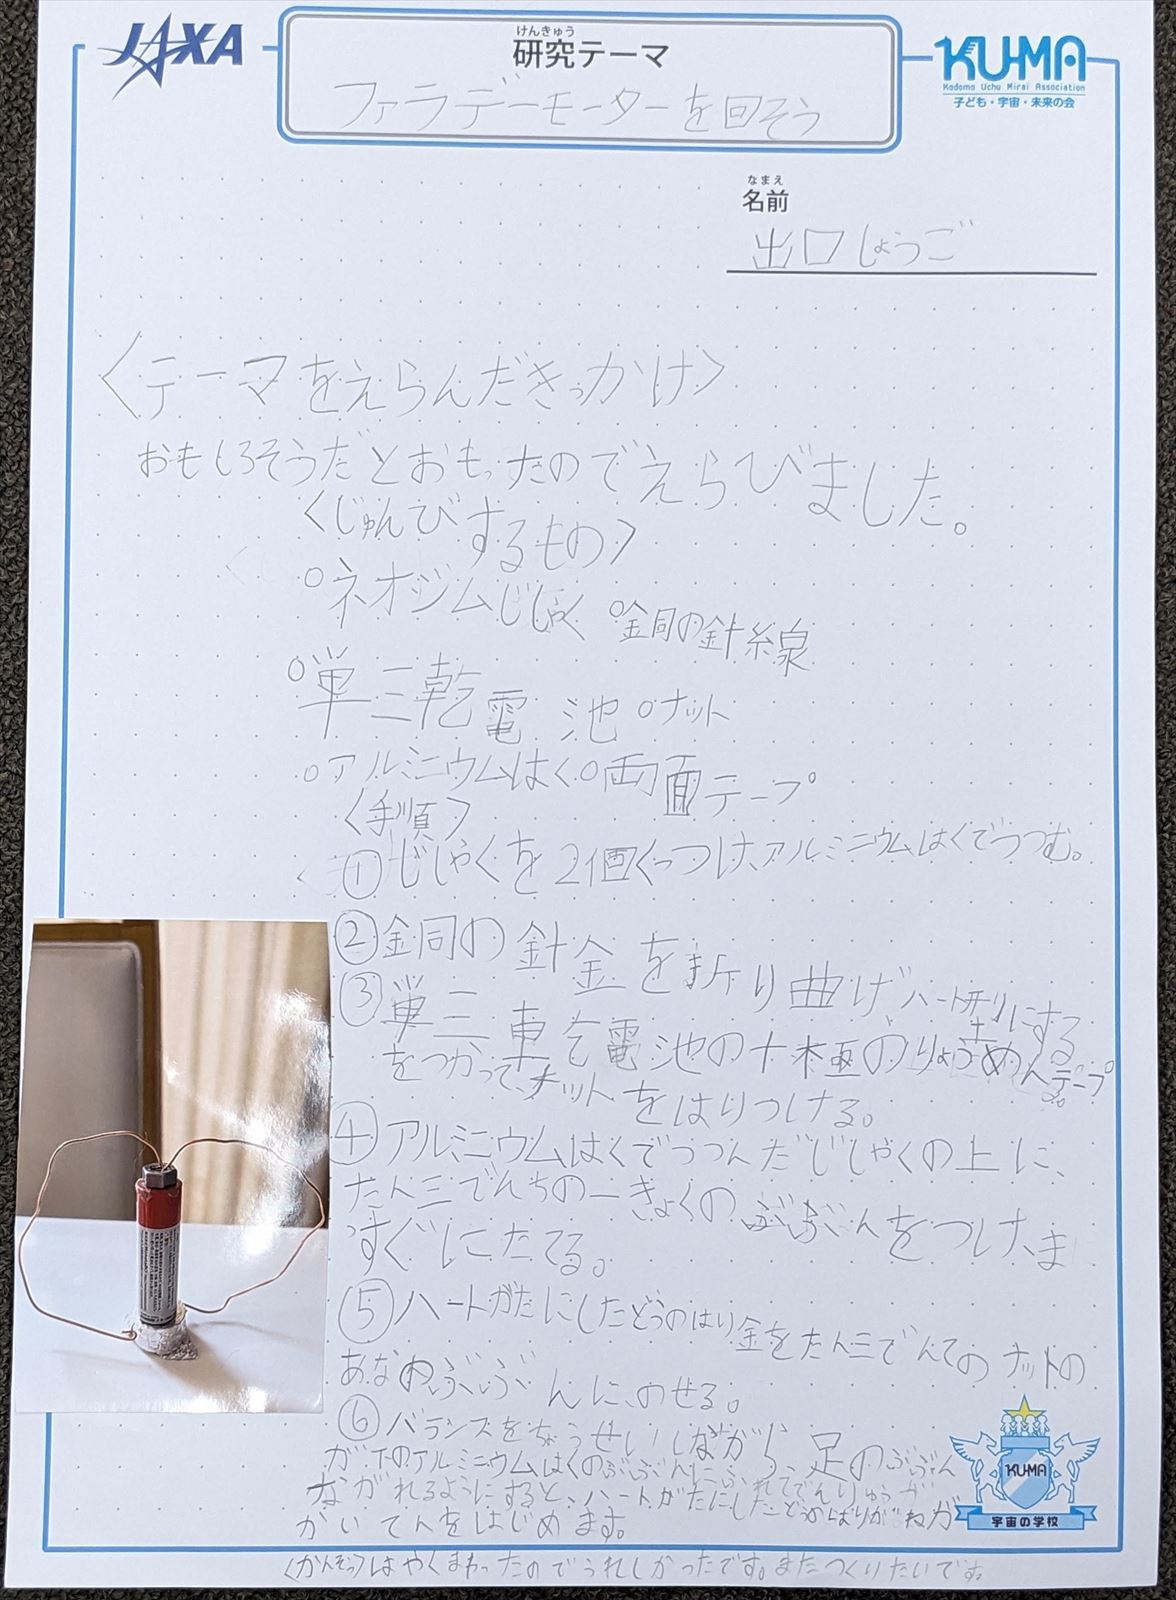 JAXA
けんきゅう
研究テーマ
ファラデーモーターを回そう
KU-MA
Kodomo Uchu Mirai Association
子ども・宇宙・未来の会
なまえ
名前
出口しょうご
〈テーマをえらんだきっかけ〉
おもしろそうだとおもったのでえらびました。
〈じゅんびするもの〉
○ネオジムじしゃく ○銅の針線
○単三乾電池 ○ナット
○アルミニウムはく ○両面テープ
〈手順〉
①じしゃくを2個くっつけ、アルミニウムはくでつつむ。
②銅の針金を折り曲げハート型にする
③単三乾電池の+極のりょうめんテープ
をつかって、ナットをはりつける。
④アルミニウムはくでつつんだじしゃくの上に、
たん三でんちの一きょくのぶぶんをつけ、ま
すぐにたてる。
⑤ハートがたにしたどうのはり金をたん三でんちのナットの
あなのぶぶんに、のせる。
⑥バランスをちょうせいしながら、足のぶぶん
が下のアルミニウムはくのぶぶんにふれてでんりゅうが
ながれるようにすると、ハートがたにしたどうのはりがねが
かいてんをはじめます。
KU-MA
宇宙の学校
〈かんそう〉はやくまわったのでうれしかったです。またつくりたいです。